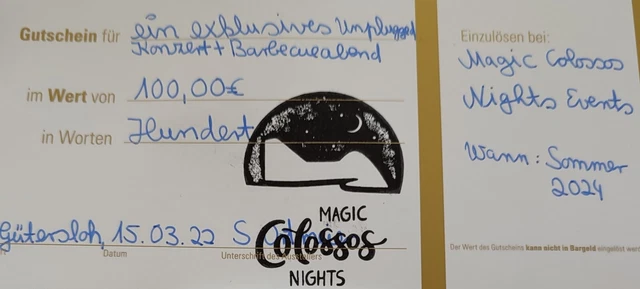 Gutschein für ein exklusives Unplugged
Konzert + Barbecueabend
im Wert von 100,00€
in Worten Hundert
Gütersloh, 15.03.22 S
Datum
Unterschrift des Ausstellers
MAGIC
Colossos
NIGHTS
Einzulösen bei:
Magic Colossos
Nights Events
Wann: Sommer
2024
Der Wert des Gutscheins kann nicht in Bargeld eingelöst